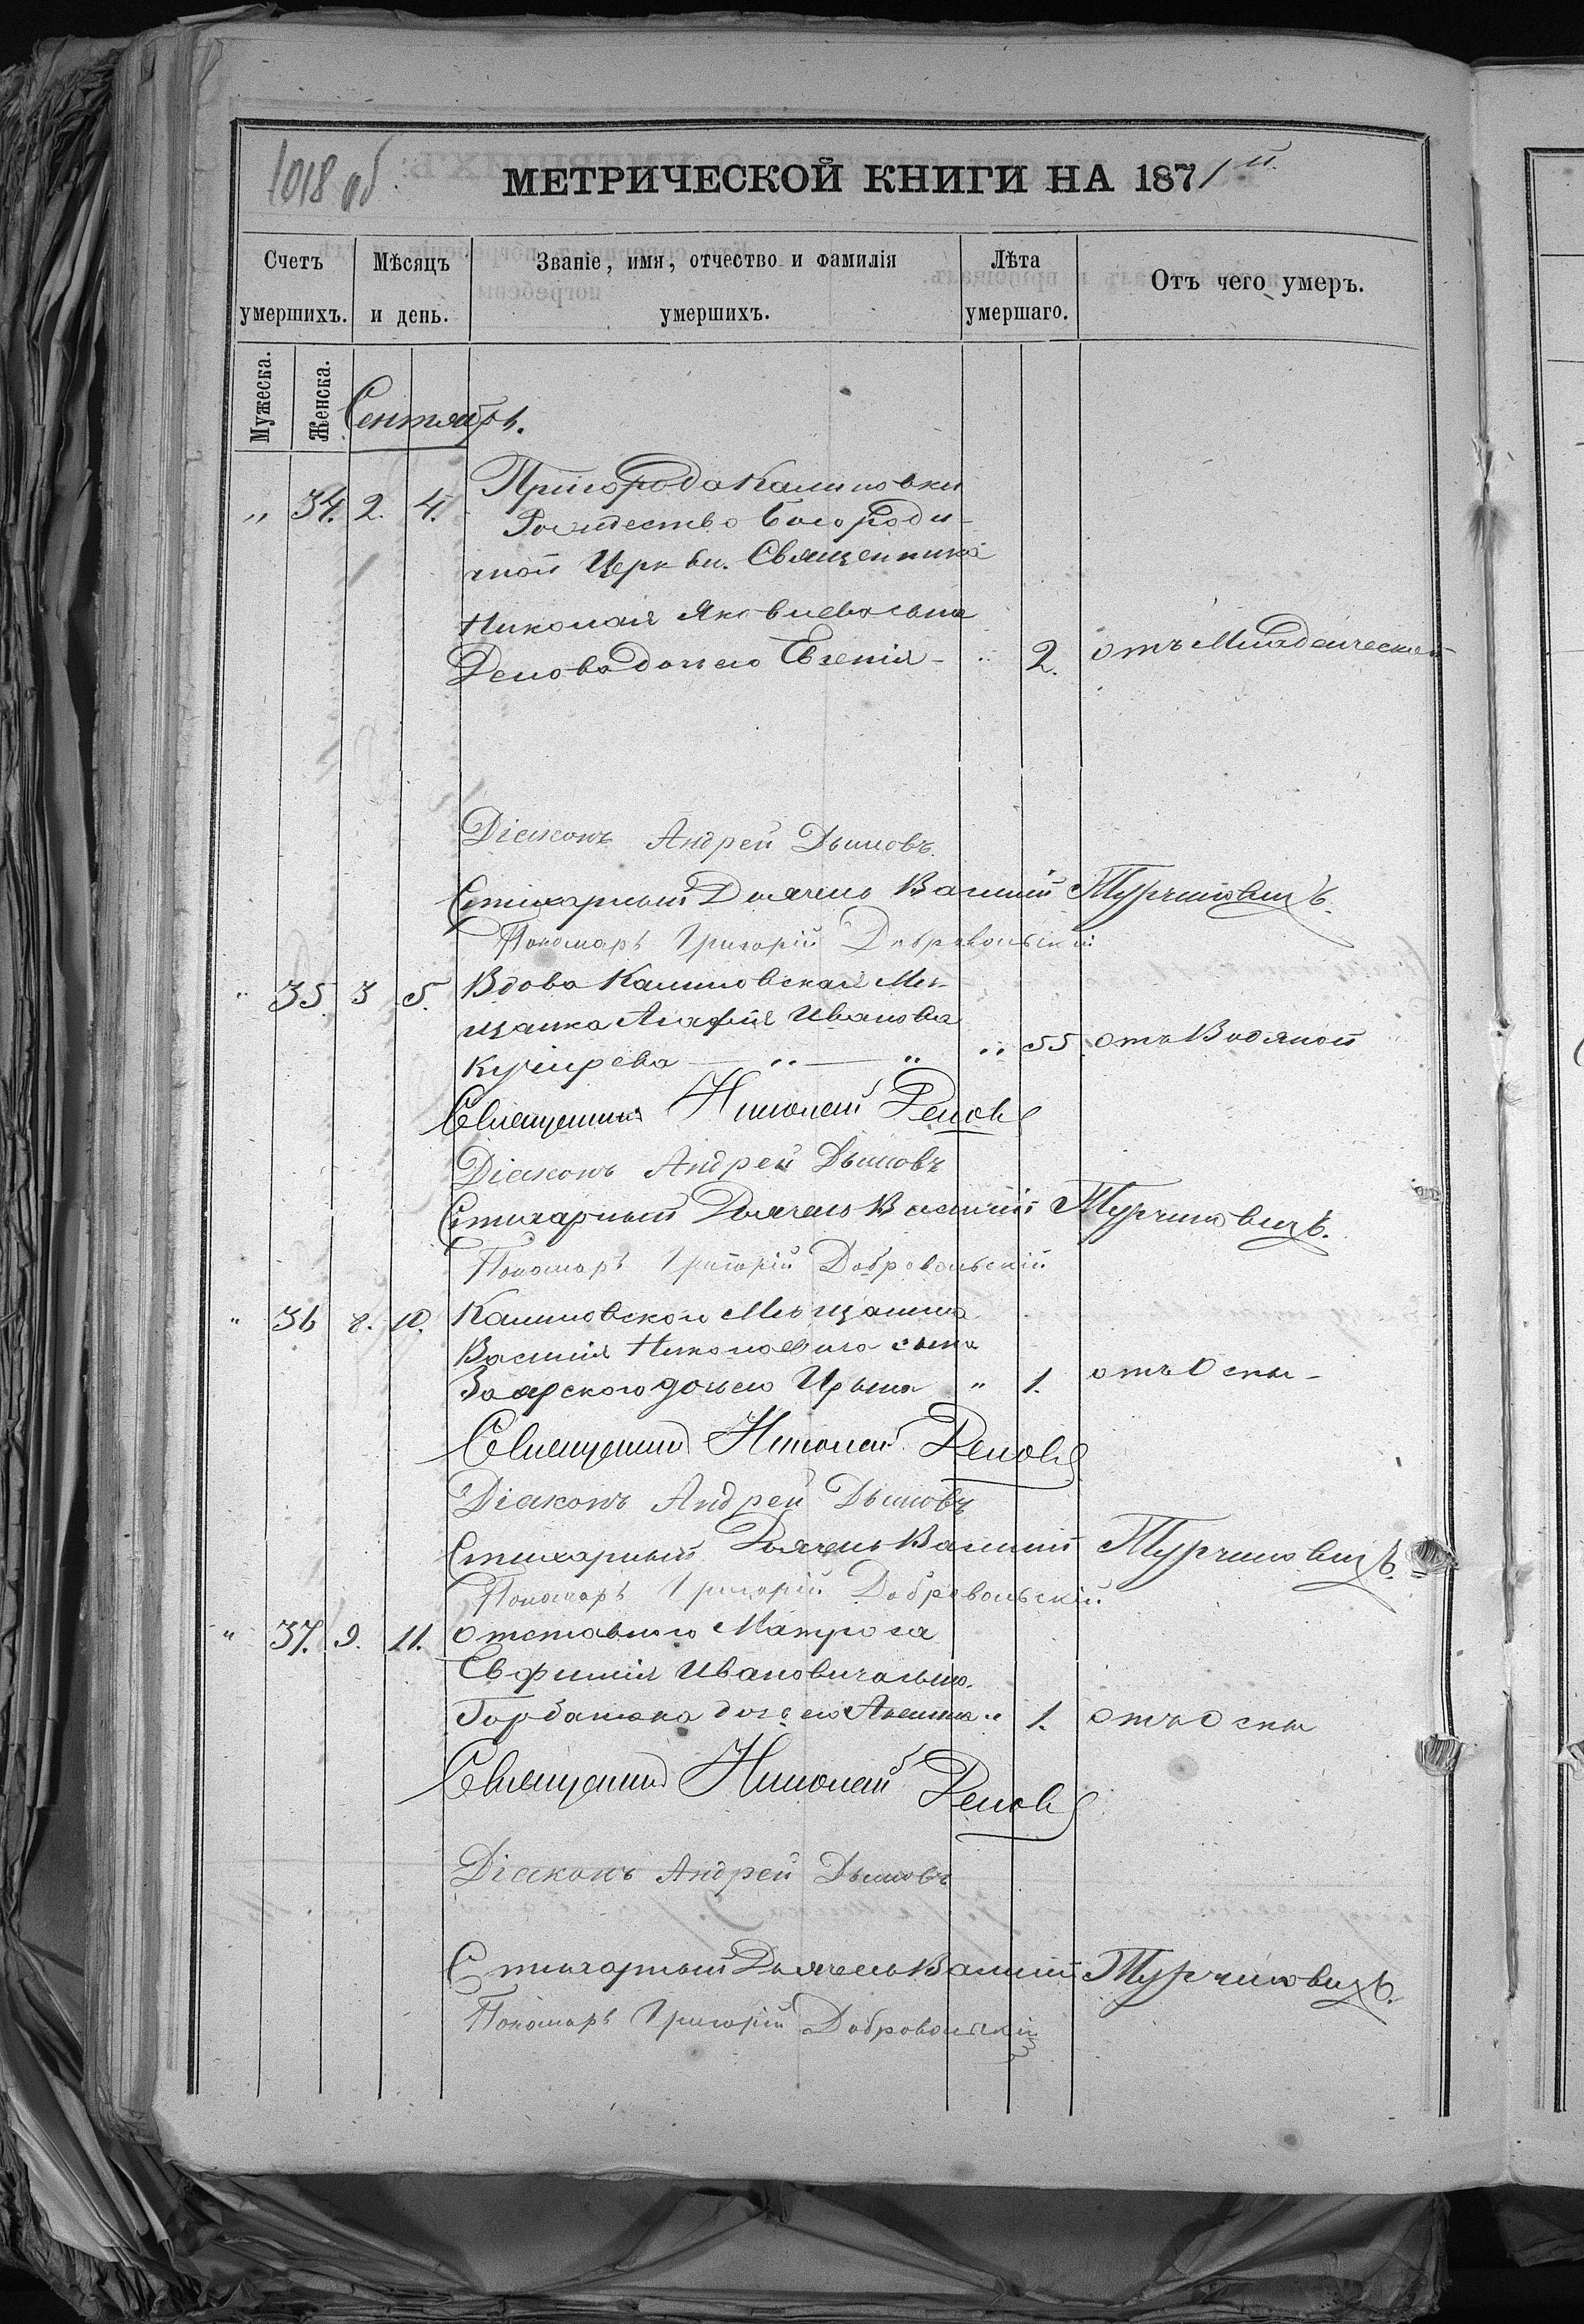 1018 об.
МЕТРИЧЕСКОЙ КНИГИ НА 1871 й.
Счетъ умершихъ.
Мѣсяцъ и день.
Званіе, имя, отчество и фамилія умершихъ.
Лѣта умершаго.
Отъ чего умеръ.
Мужеска.
Женска.
Сентябрь.
Пригорода Калиновки
" 34. 2. 4. Рождество Богороди-
чной Церкви. Священника
Николая Яковлева сына
дочь его Евгенія - " 2. отъ Младенческой
Діаконъ Андрей Дымовъ.
Стихарный Дьячекъ Василій Турчиновичъ.
Пономарь Григорій Добровольскій
" 35. 3 5. Вдова Калиновская Мѣ-
щанка Агафія Иванова
" 55. отъ Водяной
Священникъ Николай
Діаконъ Андрей Дымовъ
Стихарный Дьячекъ Василій Турчиновичъ.
Пономарь Григорій Добровольскій
" 36 8. 10. Калиновского Мѣщанина
Василія Николаевича сына
Заярского дочь его Ирина " 1. отъ Оспы -
Священникъ Николай
Діаконъ Андрей Дымовъ
Стихарный Дьячекъ Василій Турчиновичъ.
Пономарь Григорій Добровольскій
" 37. 9. 11. Отставного Матроса
Евфимія Ивановича сына
Горбатюка дочь его " 1. отъ Оспы
Священникъ Николай
Діаконъ Андрей Дымовъ
Стихарный Дьячекъ Василій Турчиновичъ.
Пономарь Григорій Добровольскій